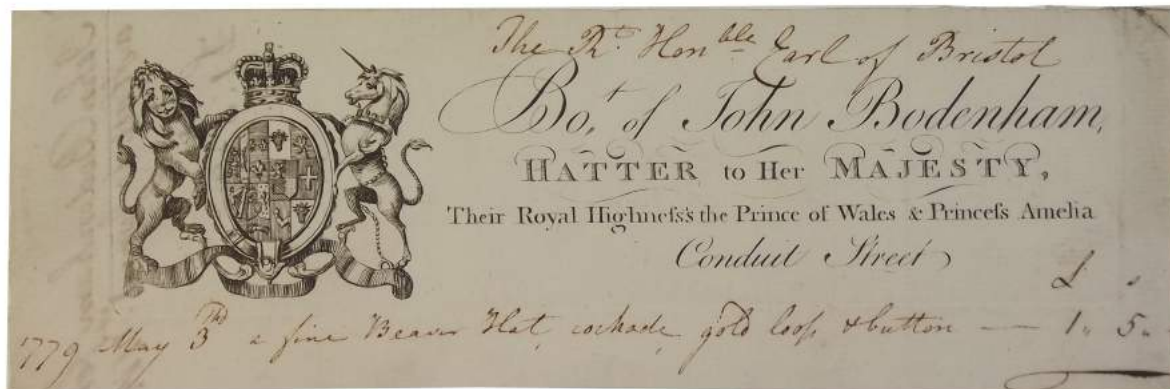 The Rt. Honble Earl of Bristol
Bot. of John Bodenham,
HATTER to Her MAJESTY,
Their Royal Highneſs's the Prince of Wales & Princeſs Amelia
Conduit Street
£ s
1779 May 3rd a fine Beaver Hat, cockade, gold loop & button — 1" 5"